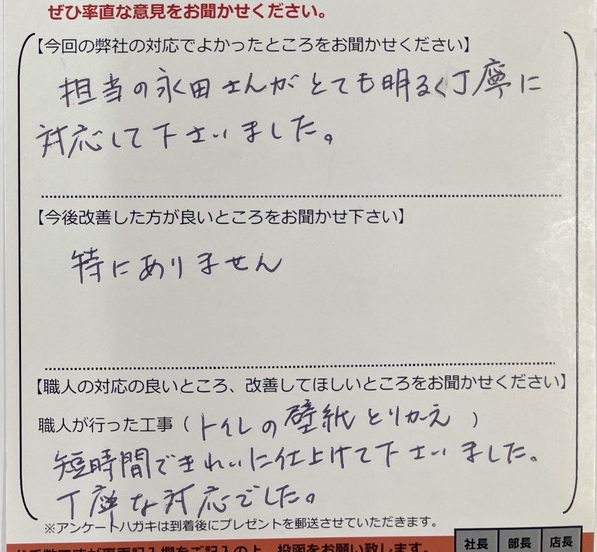 ぜひ率直な意見をお聞かせください。
【今回の弊社の対応でよかったところをお聞かせください】
担当の永田さんがとても明るく丁寧に
対応して下さいました。
【今後改善した方が良いところをお聞かせ下さい】
特にありません
【職人の対応の良いところ、改善してほしいところをお聞かせください】
職人が行った工事（トイレの壁紙とりかえ）
短時間できれいに仕上げて下さいました。
丁寧な対応でした。
※アンケートハガキは到着後にプレゼントを郵送させていただきます。
ご記入の上、投函をお願い致します。
社長 部長 店長